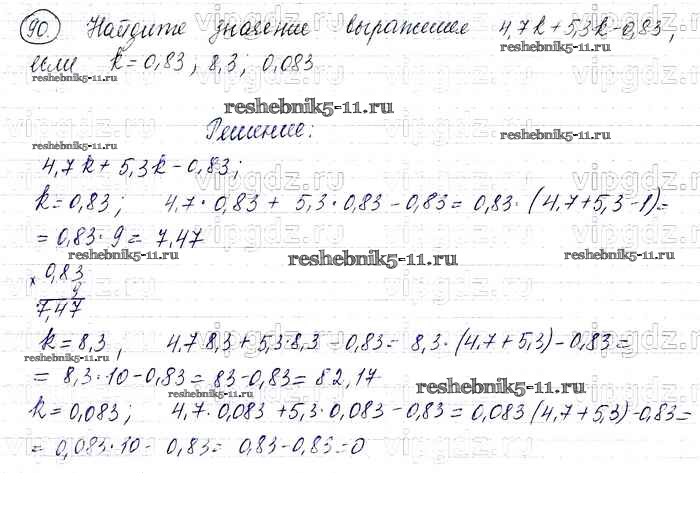 90. Найдите значение выражения 4,7k+5,3k-0,83,
если k=0,83; 8,3; 0,083
reshebnik5-11.ru
reshebnik5-11.ru
reshebnik5-11.ru
Решение:
4,7k+5,3k-0,83;
k=0,83; 4,7·0,83+5,3·0,83-0,83=0,83·(4,7+5,3-1)=
=0,83·9=7,47
reshebnik5-11.ru
reshebnik5-11.ru
reshebnik5-11.ru
x 0,83
9
7,47
k=8,3, 4,7·8,3+5,3·8,3-0,83=8,3·(4,7+5,3)-0,83=
reshebnik5-11.ru
=8,3·10-0,83=83-0,83=82,17
reshebnik5-11.ru
k=0,083; 4,7·0,083+5,3·0,083-0,83=0,083(4,7+5,3)-0,83=
=0,083·10-0,83=0,83-0,83=0
vipgdz.ru